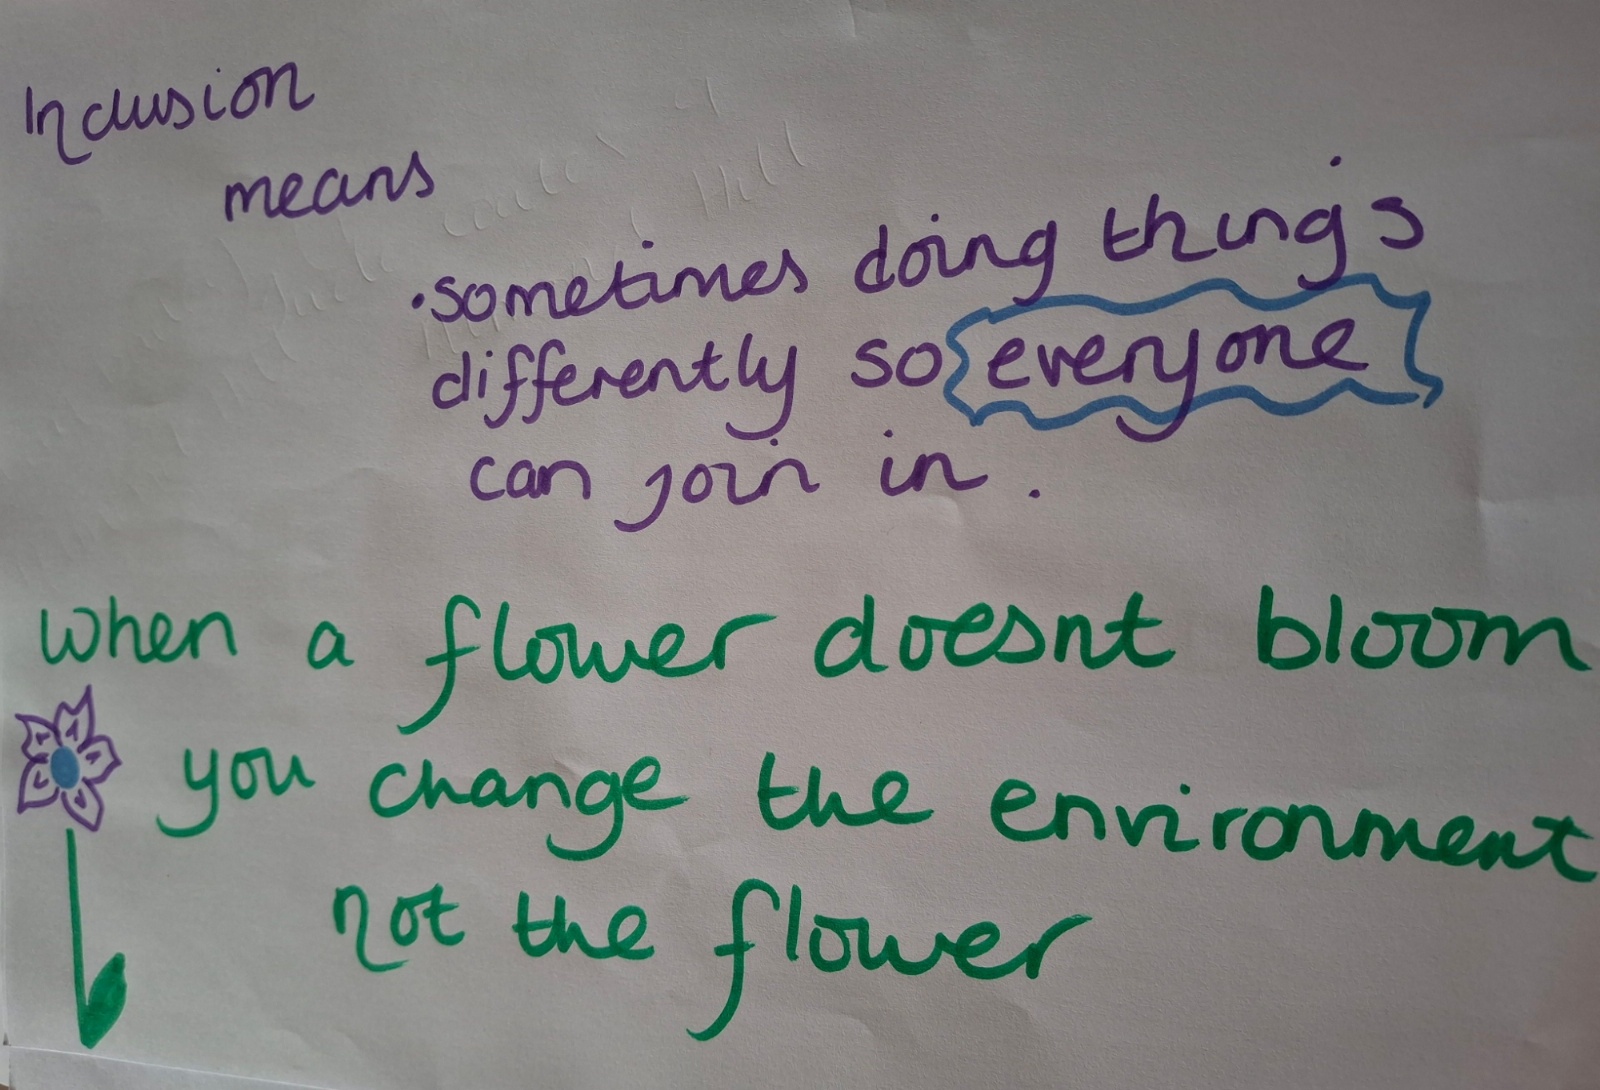 Inclusion
means
• sometimes doing things
differently so everyone
can join in .
When a flower doesnt bloom
you change the environment
not the flower